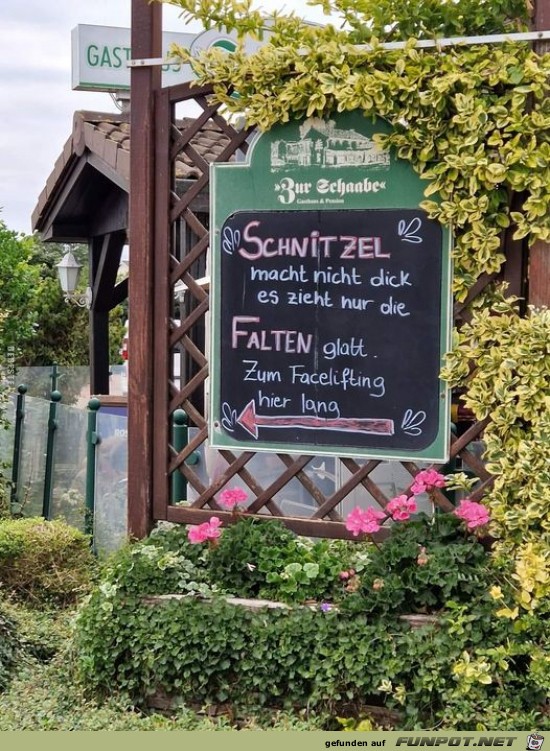 GAST
»Zur Schaabe«
Gasthaus & Pension
SCHNITZEL
macht nicht dick
es zieht nur die
FALTEN glatt.
Zum Facelifting
hier lang
gefunden auf FUNPOT.NET